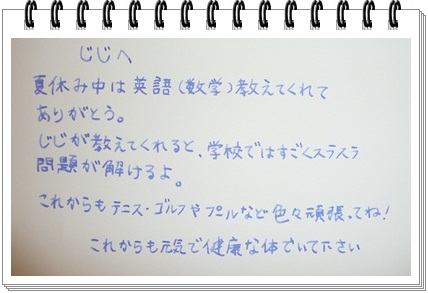 じじへ
夏休み中は英語(数学)教えてくれて
ありがとう。
じじが教えてくれると、学校ではすごくスラスラ
問題が解けるよ。
これからもテニス・ゴルフやプールなど色々頑張ってね!
これからも元気で健康な体でいて下さい